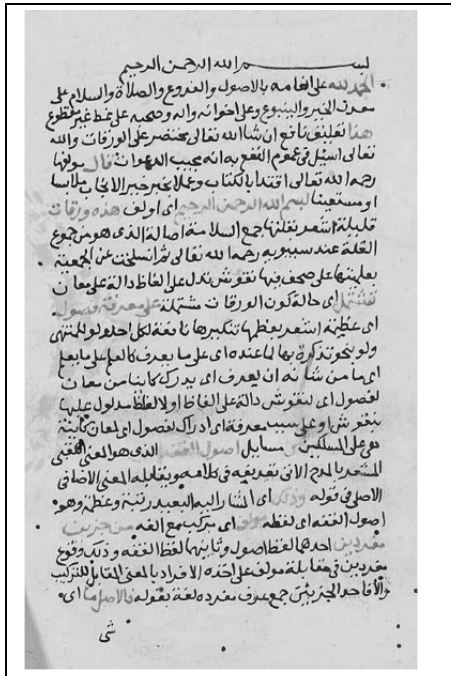 بسم الله الرحمن الرحيم
الحمد لله على انعامه بالاصول والفروع والصلاة والسلام على
معدن الخير والينبوع وعلى اخوانه واله وصحبه على نمط غير مقطوع
هذا تعليق نافع ان شا الله تعالى مختصر على الورقات والله
تعالى اسيل في عموم النفع به انه مجيب الدعوات قال مولفها
رحمه الله تعالى اقتدا بالكتاب وعملا بخبر خير الانجاب ملابسا
او مستعينا بسم الله الرحمن الرحيم اي اولف هذه ورقات
قليلة اشعر بقلتها جمع السلامة اصالة الذي هو من جموع
القلة عند سيبويه رحمه الله تعالى ثم انسلخت عن الجمعية
بعلميتها على صحف فيها نقوش تدل على الفاظ دالة على معان
تشتمل اي حالة كون الورقات مشتملة على معرفة فصول
اي عظيمة اشعر بعظمها تنكيرها نافعة لكل احد ولو للمنتهى
ولو بنحو تذكرة بها لما عنده اي على ما يعرف كالعلم على ما يعلم
اي ما من شانه ان يعرف اي يدرك كاينا من معان
لفصول اي لنقوش دالة على الفاظ اولا لفظ مدلول عليها
بنقوش او على سبب معرفة اي ادراك لفصول اي لمعان كاينة
من مسايل اصول الفقه الذي هو المعنى اللقبي
المشعر بالمدح الاتي تعريفه في كلامه ويقابله المعنى الاضافي
الاصلي في قوله وذلك اي المشار اليه البعيد رتبة وعظمة وهو
اصول الفقه اي لفظه مولف اي مركب مع الفه من جزيين
مفردين احدهما لفظ اصول وثانيهما لفظ الفقه وذلك وقوع
مفردين في مقابلة مولف على اخذه الافراد بالمعنى المقابل للتركيب
والا فاحد الجزيين جمع عرف مفرده لغة بقوله فالاصل ما اي
شي